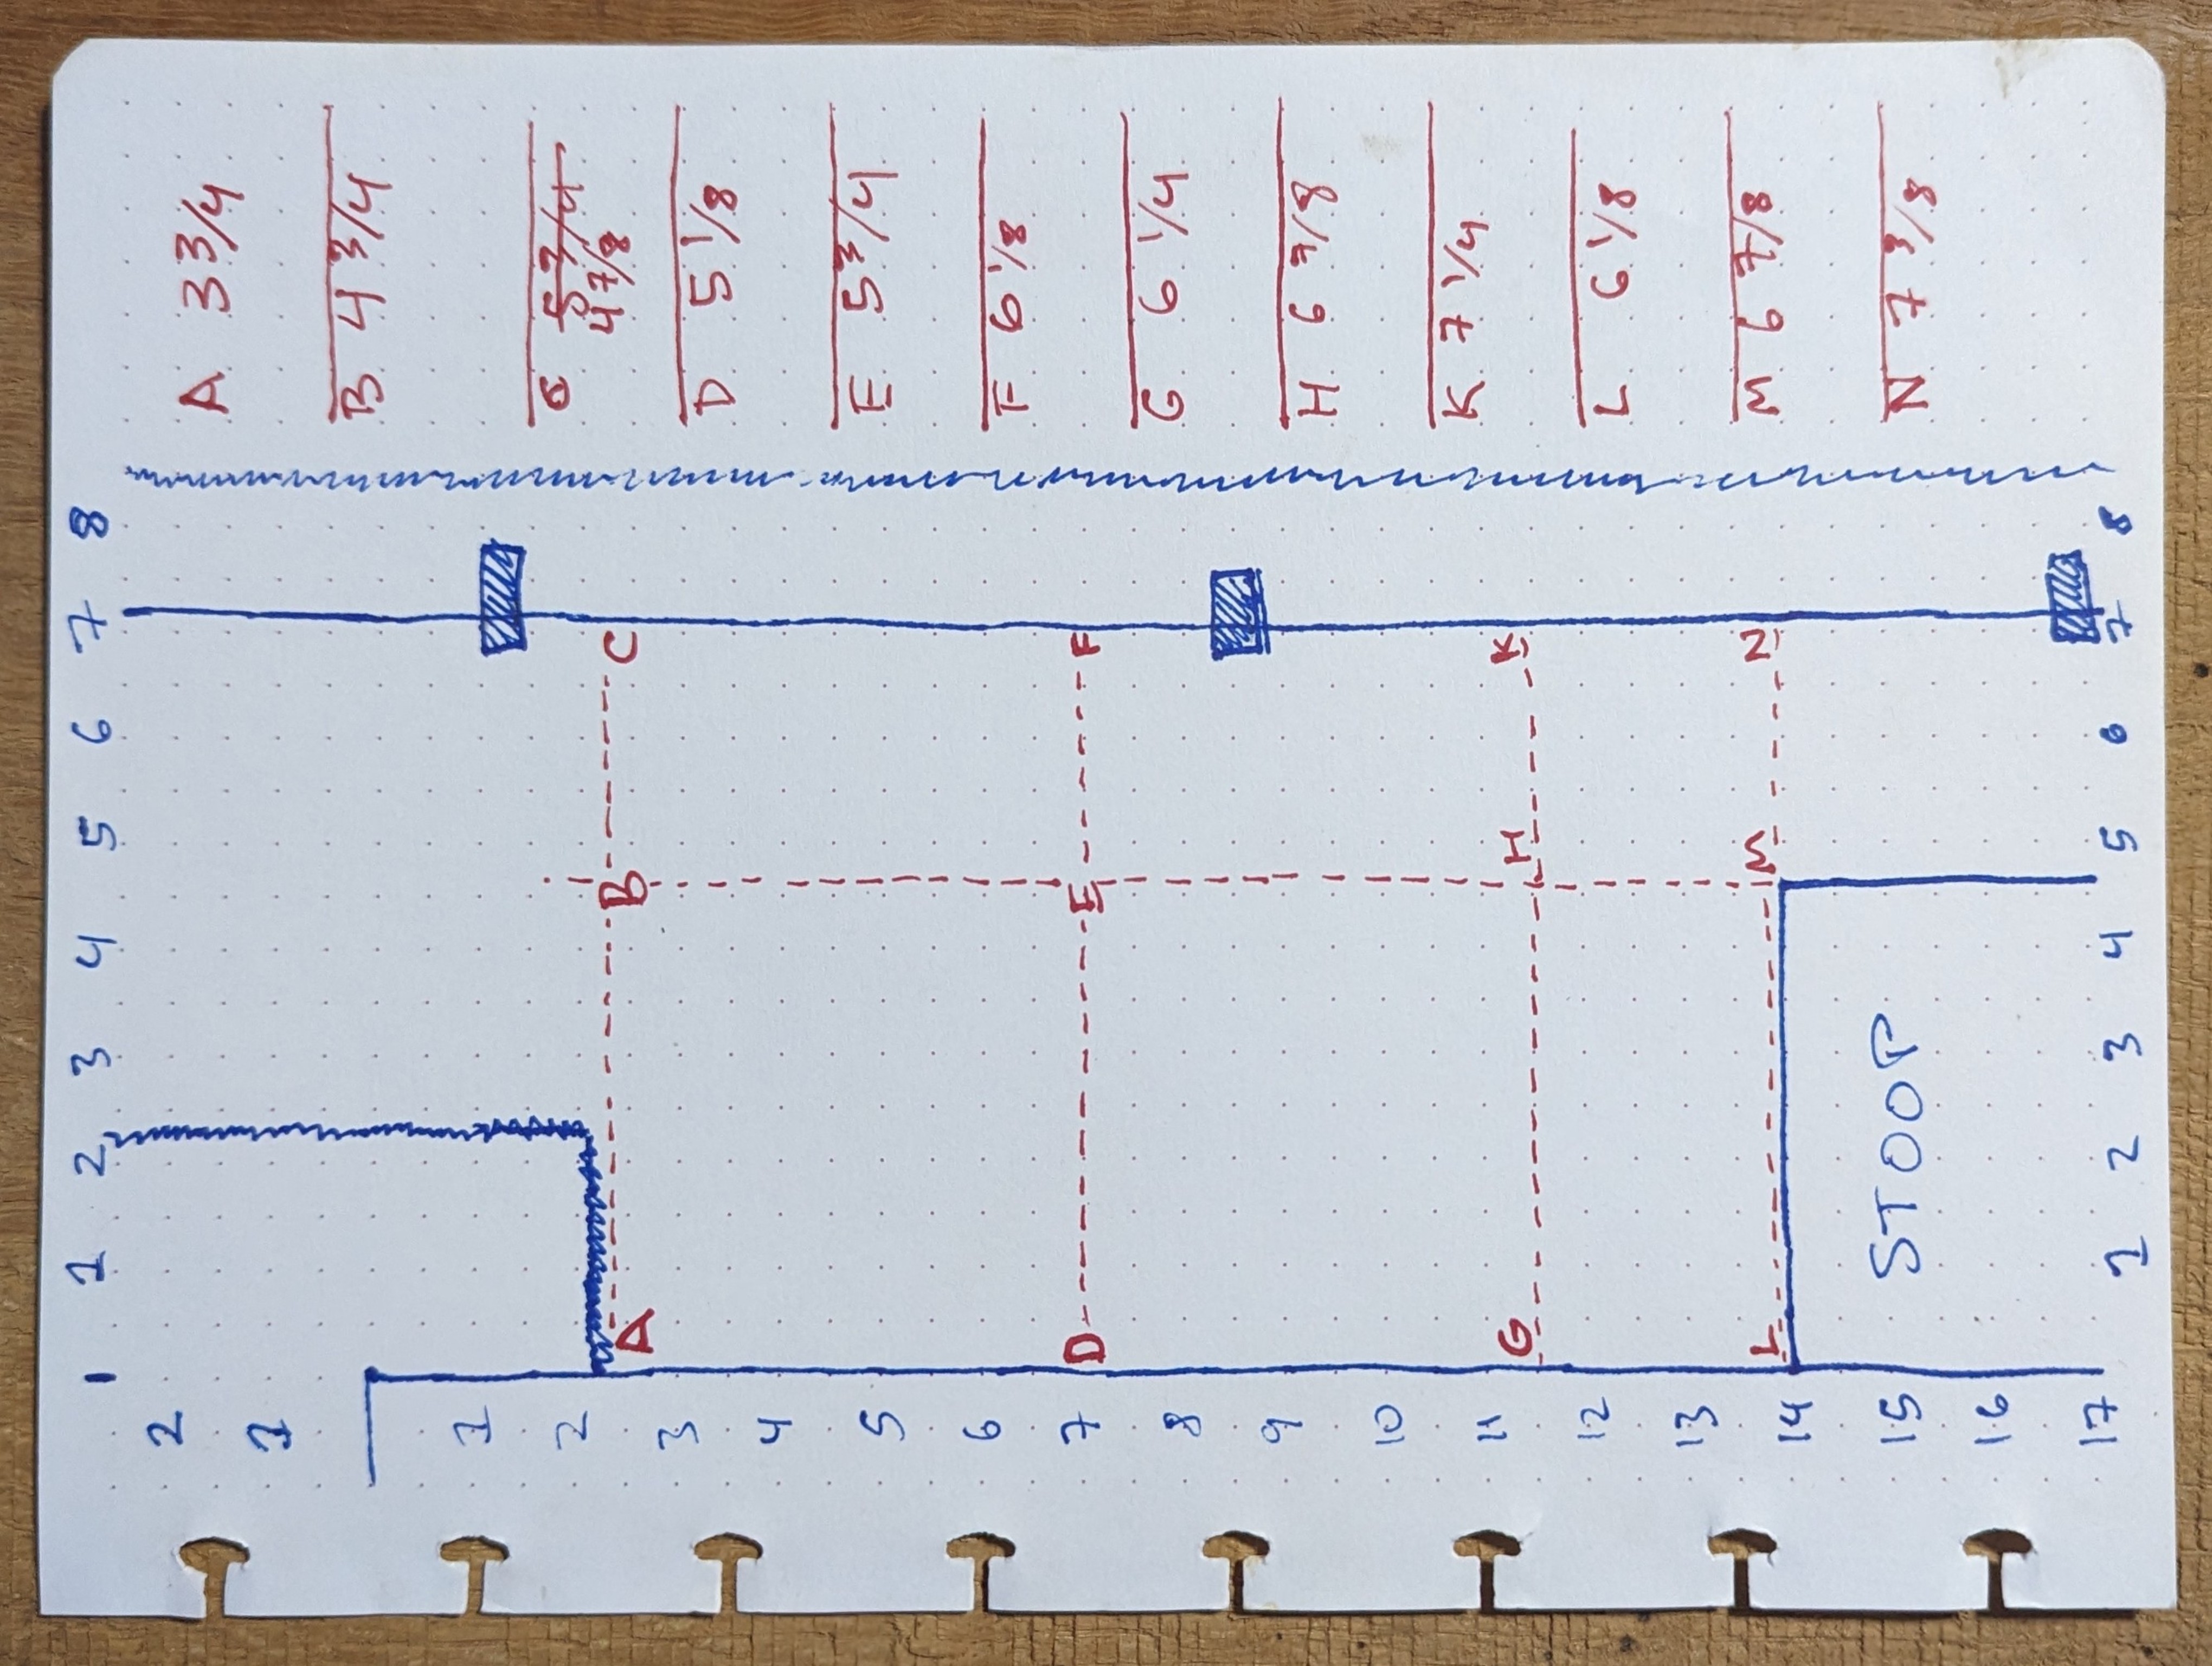 1 2 3 4 5 6 7 8
2
1
1
2
3
4
5
6
7
8
9
10
11
12
13
14
15
16
17
A B C
D E F
G H K
L M N
STOOP
1 2 3 4 5 6 7 8
A 3 3/4
B 4 3/4
C
4 7/8
D 5 1/8
E 5 3/4
F 6 1/8
G 6 1/4
H 6 7/8
K 7 1/4
L 6 1/8
M 6 7/8
N 7 3/8